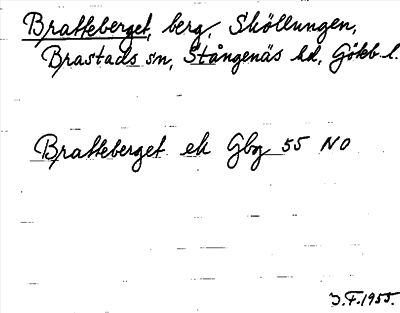 Bratteberget, berg, Sköllungen,
Brastads sn, Stångenäs hd, Göbb. l.
Bratteberget ek Gbg 55 NO
J.F. 1955.